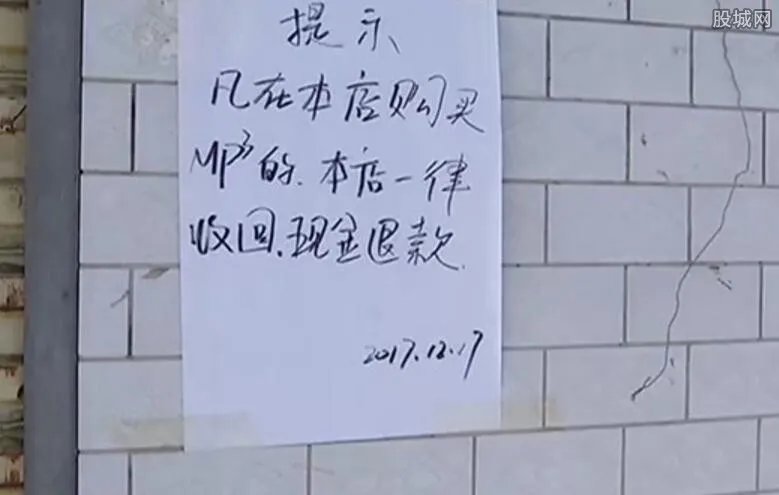 股城网
提示
凡在本店购买
MP3的.本店一律
收回.现金退款.
2017.12.17